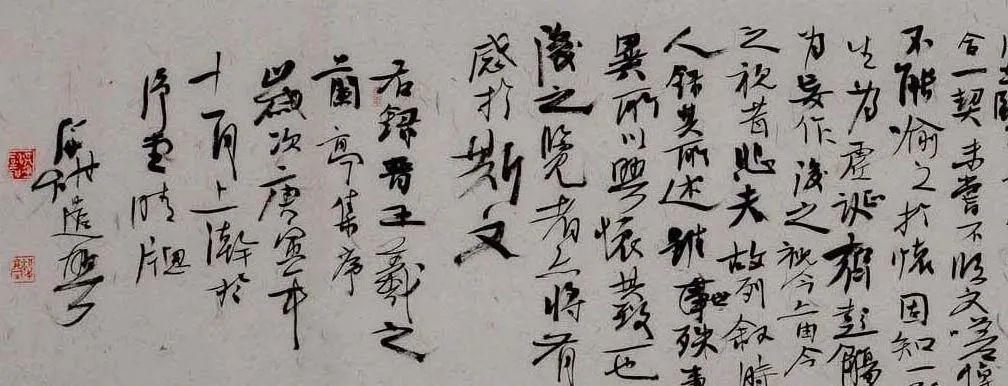 合一契未嘗不临文嗟悼
不能喻之於懷固知一
生为虚诞齊彭殤
为妄作後之視今亦由今
之視昔悲夫故列叙時
人錄其所述雖世殊事
異所以興懷其致一也
後之覽者亦將有
感於斯文
右錄晋王羲之
蘭亭集序
歲次庚寅年
十一月上澣於
堂晴牕